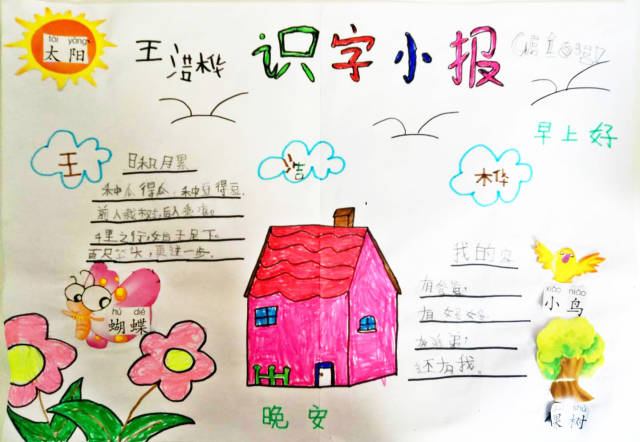 tài yáng
太阳
王浩桦
识字小报
早上好
王
浩
桦
日积月累
种瓜得瓜，种豆得豆。
前人栽树，后人乘凉。
千里之行，始于足下。
百尺竿头，更进一步。
hú dié
蝴蝶
我的家
有爸爸，
有妈妈，
还有我。
xiǎo niǎo
小鸟
shù
果树
晚安